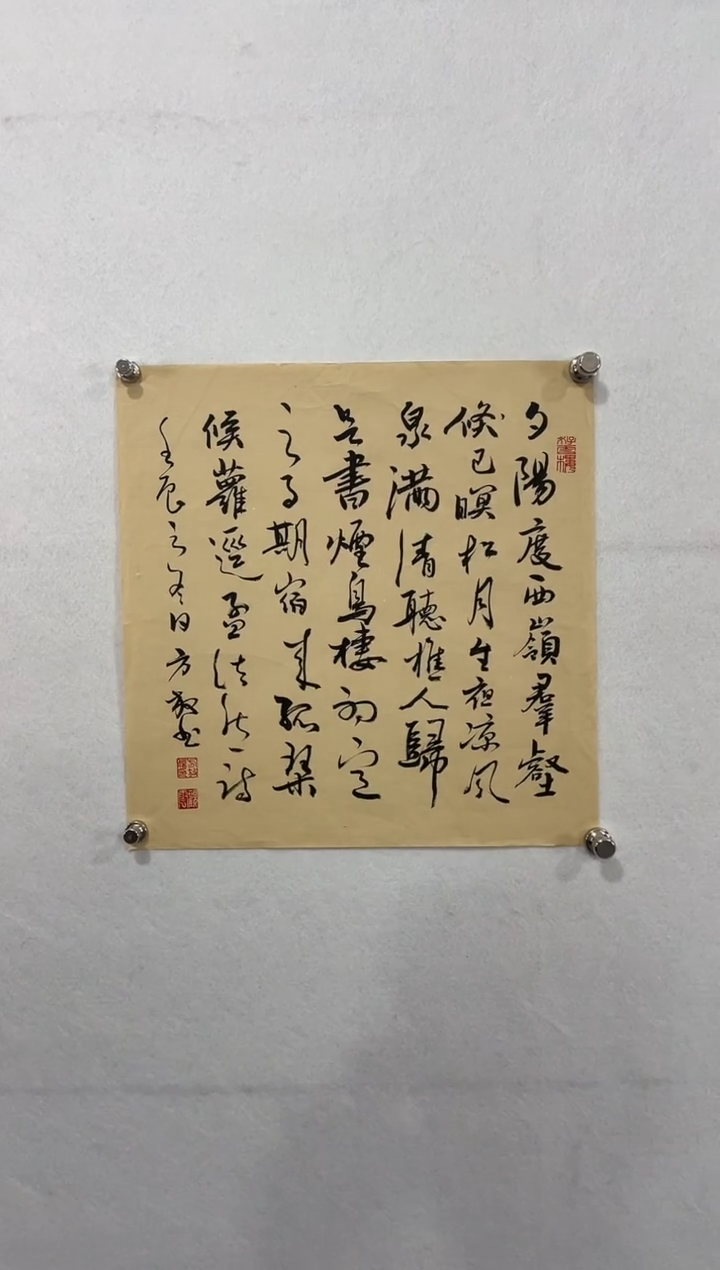 夕陽度西嶺羣壑
倏已暝松月生夜涼風
泉滿清聽樵人歸
煙鳥棲初定
之子期宿來孤琴
候蘿逕孟浩然詩
壬辰之冬日方書